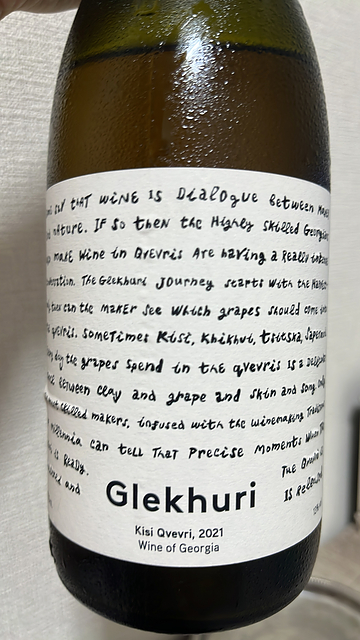 that wine is Dialogue Between
nature. If so then the Highly skilled Georgian
make wine in Qvevris Are having a Really
The Glekhuri Journey starts with the
can the maker see which grapes should come
qvevris. Sometimes Kisi, Khikhvi, tsitska, Saperavi
the grapes spend in the qvevris is a
Between clay and grape and skin and song.
skilled makers, infused with the winemaking
can tell That Precise Moments When
is Ready.
The
and
Is
Glekhuri
Kisi Qvevri, 2021
Wine of Georgia